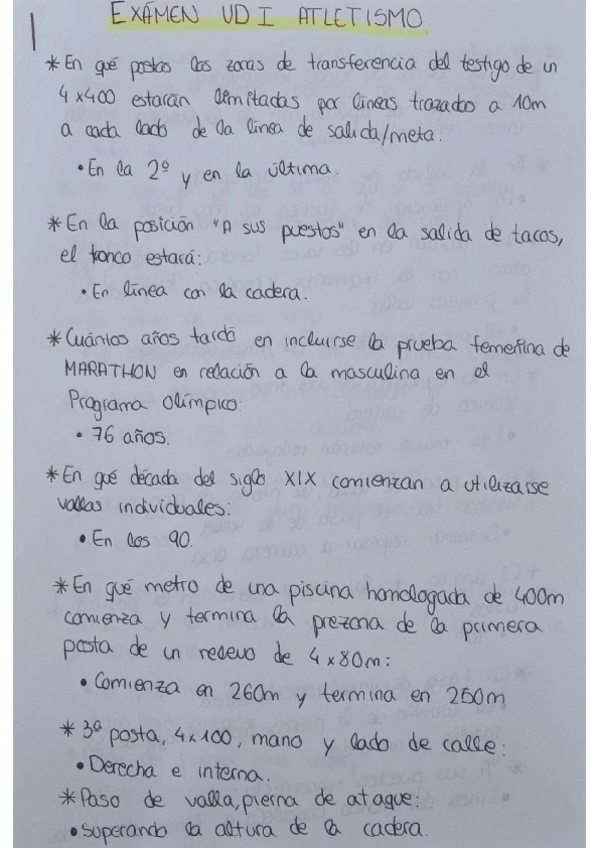 EXÁMEN UD I ATLETISMO
* En qué postas las zonas de transferencia del testigo de un
4x400 estarán limitadas por líneas trazados a 10m
a cada lado de la línea de salida/meta.
• En la 2º y en la última.
* En la posición "A sus puestos" en la salida de tacos,
el tronco estará:
• En línea con la cadera.
* Cuántos años tardó en incluirse la prueba femenina de
MARATHON en relación a la masculina en el
Programa Olímpico:
• 76 años.
* En qué década del siglo XIX comienzan a utilizarse
vallas individuales:
• En los 90.
* En qué metro de una piscina homologada de 400m
comienza y termina la prezona de la primera
posta de un relevo de 4x80m:
• Comienza en 260m y termina en 250m
* 3ª posta, 4x100, mano y lado de calle:
• Derecha e interna.
* Paso de valla, pierna de ataque:
• Superando la altura de la cadera.